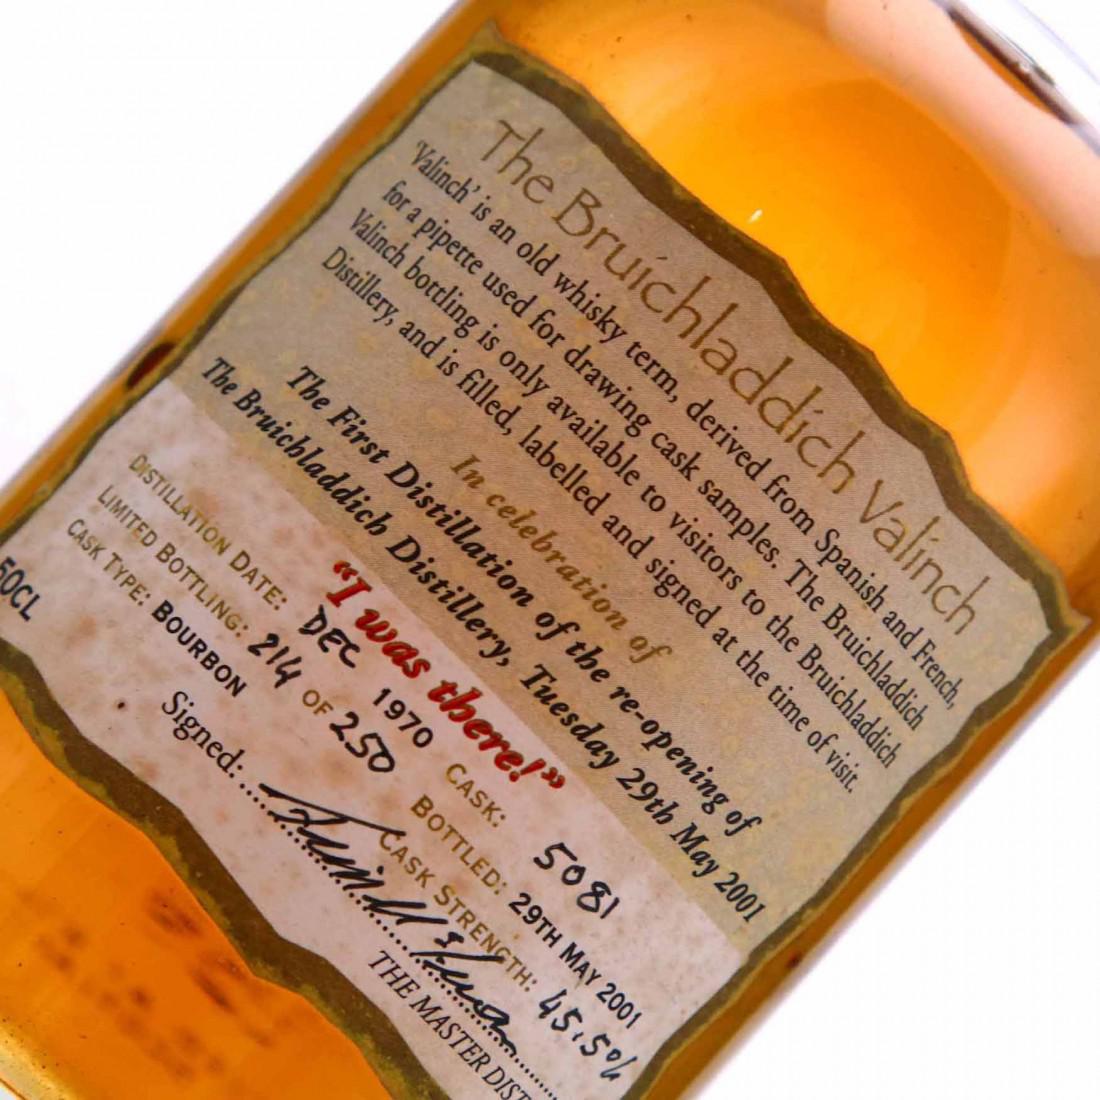 The Bruichladdich Valinch
'Valinch' is an old whisky term, derived from Spanish and French,
for a pipette used for drawing cask samples. The Bruichladdich
Valinch bottling is only available to visitors to the Bruichladdich
Distillery, and is filled, labelled and signed at the time of visit.
In celebration of
The First Distillation of the re-opening of
The Bruichladdich Distillery, Tuesday 29th May 2001
"I was there!"
DISTILLATION DATE: DEC 1970 CASK: 5081
LIMITED BOTTLING: 214 OF 250 BOTTLED: 29TH MAY 2001
CASK TYPE: BOURBON CASK STRENGTH: 45.5%
Signed:
THE MASTER
50CL